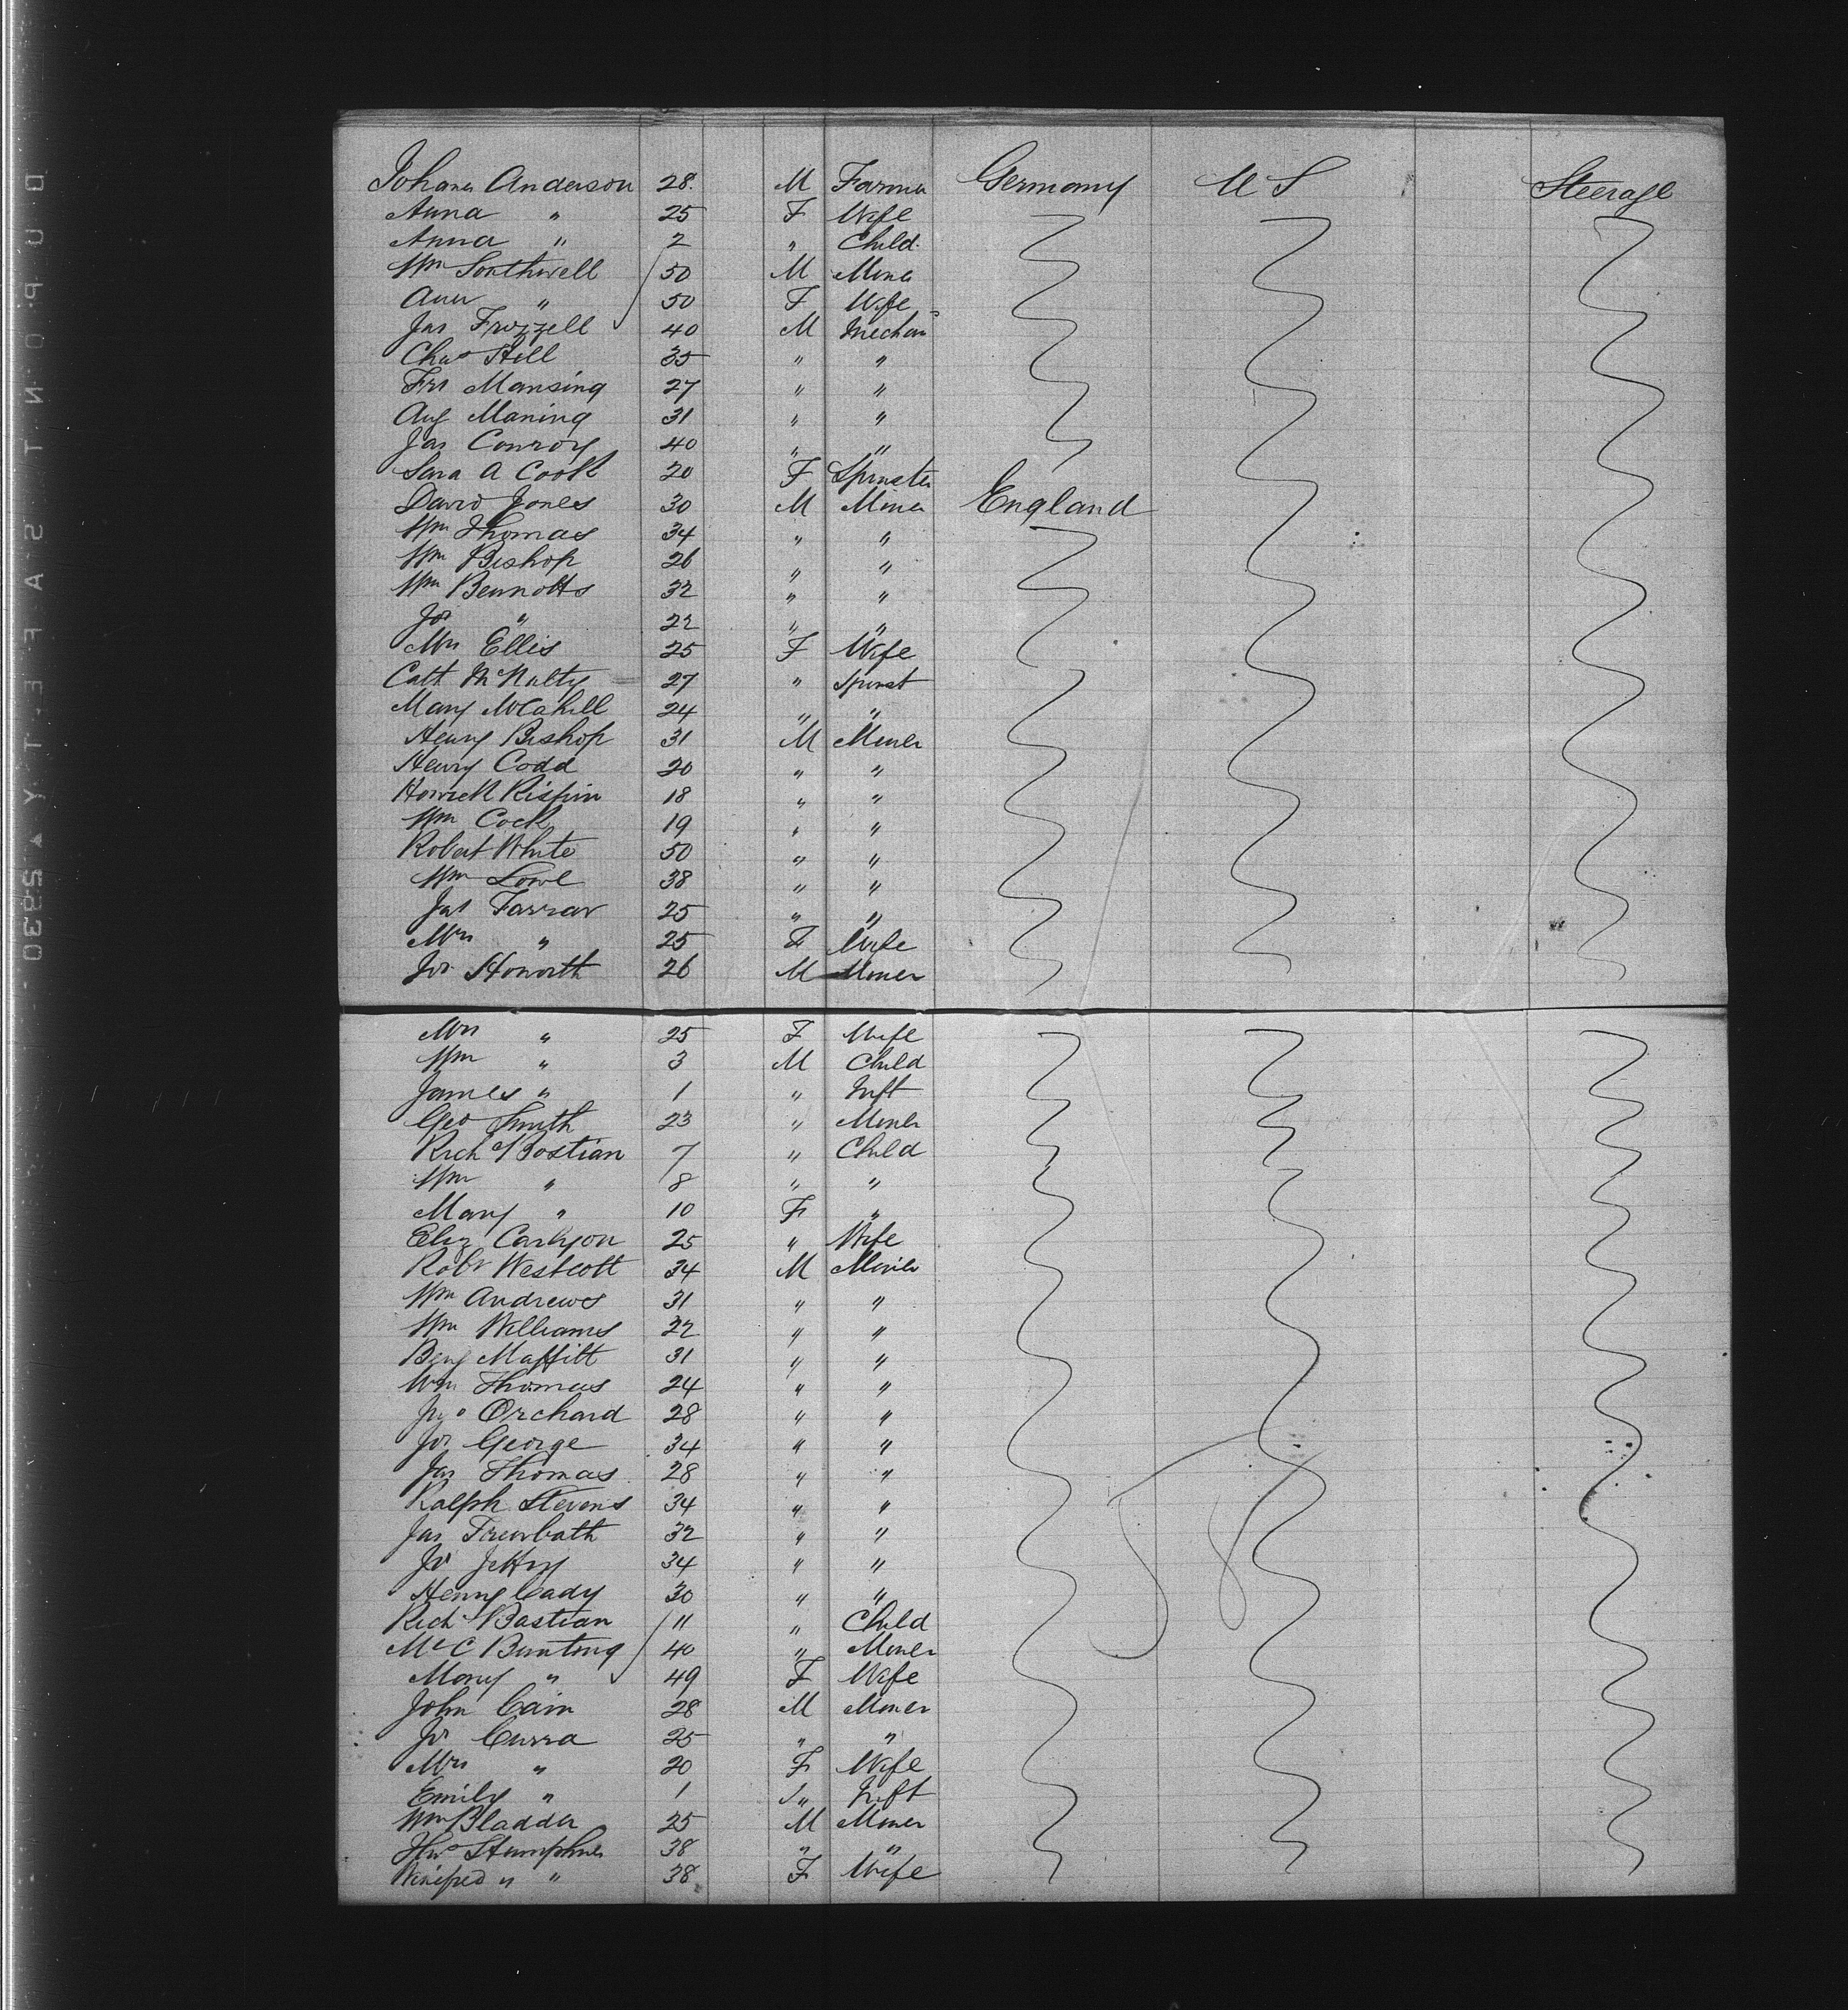 Johanes Anderson 28. M Farmer Germany U S Steerage
Anna " 25 F Wife
Anna " 2 " Child
Wm Southwell 50 M Miner
Ann " 50 F Wife
Jas Frizzell 40 M Mechan
Chas Hill 35 " "
Frs Mansing 27 " "
Aug Maning 31 " "
Jas Conroy 40 " "
Sara A Cook 20 F Spinster
David Jones 30 M Miner England
Wm Thomas 34 " "
Wm Bishop 26 " "
Wm Bennotts 32 " "
Jos " 22 " "
Mrs Ellis 25 F Wife
Cath McNulty 27 " Spinst
Mary McCahill 24 " "
Henry Bishop 31 M Miner
Henry Codd 20 " "
Rispin 18 " "
Wm Cock 19 " "
Robert White 50 " "
Wm Lowe 38 " "
Jas Farrar 25 " "
Mrs " 25 F Wife
Jos Howorth 26 M Miner
Mrs " 25 F Wife
Wm " 3 M Child
James " 1 " Inft
Geo Smith 23 " Miner
Richd Bastian 7 " Child
Wm " 8 " "
Mary " 10 F "
Eliz Carlyon 25 " Wife
Robt Westcott 34 M Miner
Wm Andrews 31 " "
Wm Williams 22 " "
Benj Maffitt 31 " "
Wm Thomas 24 " "
Jno Orchard 28 " "
Jos George 34 " "
Jas Thomas 28 " "
Ralph Stevens 34 " "
Jas Trewbath 32 " "
Jos Jeffry 34 " "
Henry Cady 30 " "
Richd Bastian 11 " Child
McC Bunting 40 " Miner
Mary " 49 F Wife
John Cain 28 M Miner
Jos Curra 25 " "
Mrs " 20 F Wife
Emily " 1 " Inft
Wm Bladder 25 M Miner
38 " "
Winifred " " 38 F Wife
58
DUPONT SAFETY 2930